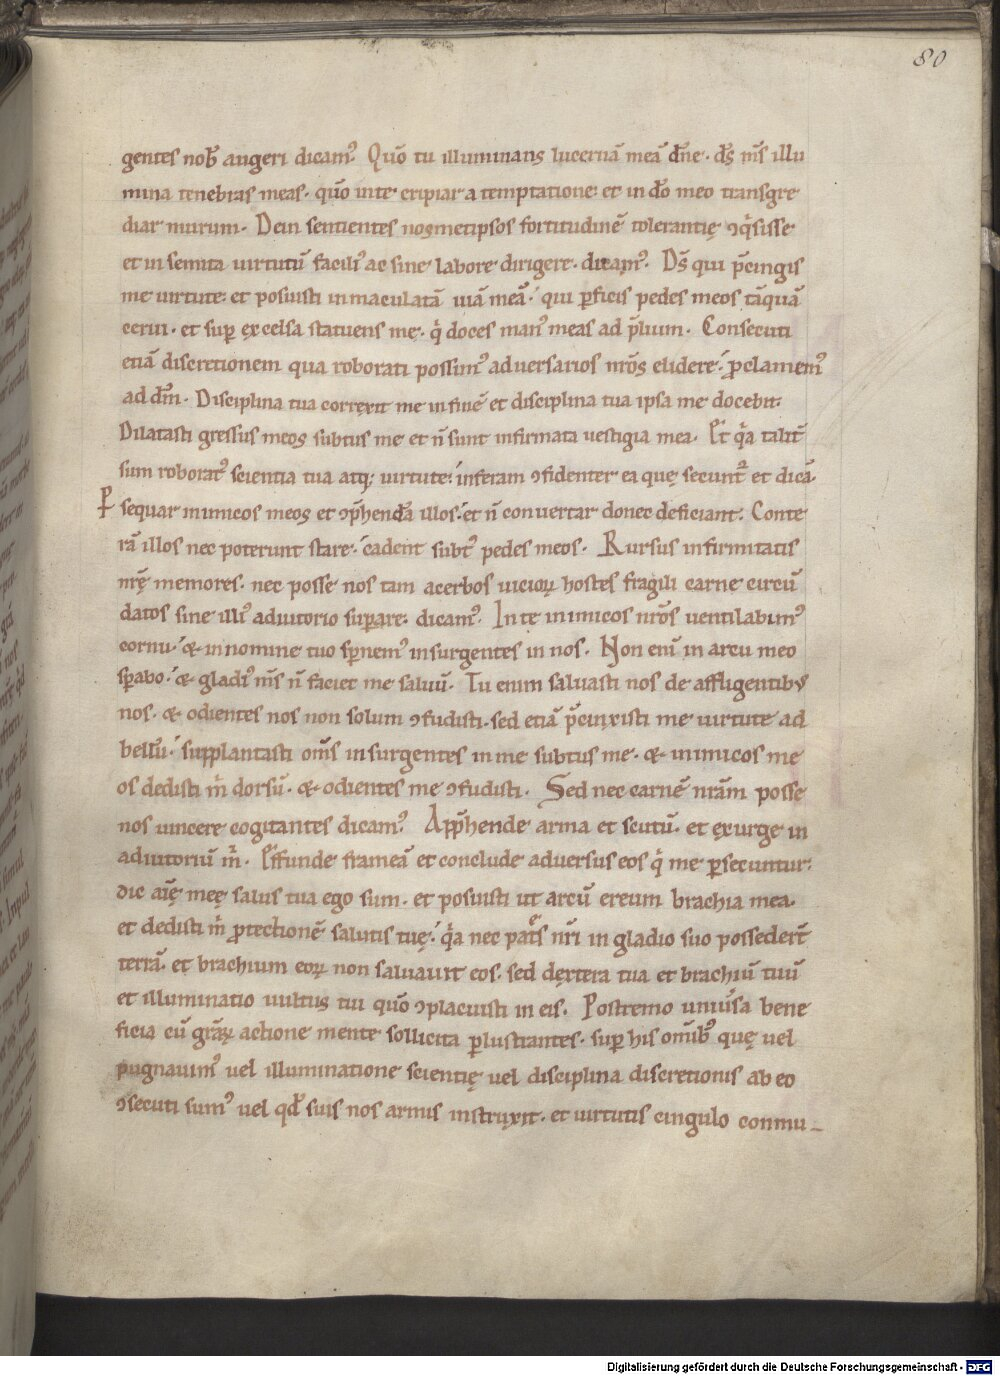 80
gentes nob̄ augeri dicam᷒. Quō tu illuminans lucernā meā dn̄e. ds̄ ms̄ illu
mina tenebras meas. quō in te eripiar a temptatione et in dō meo transgre
diar murum. Dein sentientes nosmetipsos fortitudinē tolerantię ꝯq̇sisse
et in semita uirtutū facili᷒ ac sine labore dirigere. dicam᷒. Ds̄ qui p̄cingis
me uirtute et posuisti inmaculatā uiā meā. qui ꝑficis pedes meos tāquā
cerui. et suꝑ excelsa statuens me. q̇ doces man᷒ meas ad p̄lium. Consecuti
etiā discretionem qua roborati possim᷒ aduersarios nr̄os elidere. ꝓclamem᷒
ad dm̄. Disciplina tua correxit me in finē et disciplina tua ipsa me docebit.
Dilatasti gressus meos subtus me et n̄ sunt infirmata uestigia mea. Et q̇a talit̄
sum roborat᷒ scientia tua atq; uirtute. inferam ꝯfidenter ea quę secunt᷑ et dicā.
P̄ sequar inimicos meos et ꝯp̄hendā illos. et n̄ conuertar donec deficiant. Conte
rā illos nec poterunt stare. cadent subt᷒ pedes meos. Rursus infirmitatis
nr̄ę memores. nec posse nos tam acerbos uicioꝝ hostes fragili carne circū
datos sine illi᷒ adiutorio suꝑare. dicam᷒. In te inimicos nr̄os uentilabim᷒
cornu. & in nomine tuo sꝑnem᷒ insurgentes in nos. Non eni̅ in arcu meo
sꝑabo. & gladi᷒ ms̄ n̄ faciet me saluū. Tu enim saluasti nos de affligentib᷒
nos. & odientes nos non solum ꝯfudisti. sed etiā p̄cinxisti me uirtute ad
bellū. supplantasti om̄s insurgentes in me subtus me. & inimicos me
os dedisti ṁ dorsū. & odientes me ꝯfudisti. Sed nec carnē nr̄am posse
nos uincere cogitantes dicam᷒. App̄hende arma et scutū. et exurge in
adiutoriū ṁ. Effunde frameā et conclude aduersus eos q̇ me ꝑsecuntur.
dic aīę meę salus tua ego sum. et posuisti ut arcū ereum brachia mea.
et dedisti ṁ ꝓtectionē salutis tuę. q̇a nec pat̄s nr̄i in gladio suo possedert̄
terrā. et brachium eoꝝ non saluauit eos. sed dextera tua et brachiū tuū
et illuminatio uultus tui quō ꝯplacuisti in eis. Postremo uniūsa bene
ficia cū gr̄aꝝ actione mente sollicita ꝑlustrantes. suꝑ his om̄ib᷒ quę uel
pugnauim᷒ uel illuminatione scientię uel disciplina discretionis ab eo
ꝯsecuti sum᷒ uel qd̄ suis nos armis instruxit. et uirtutis cingulo conmu-
Digitalisierung gefördert durch die Deutsche Forschungsgemeinschaft - DFG